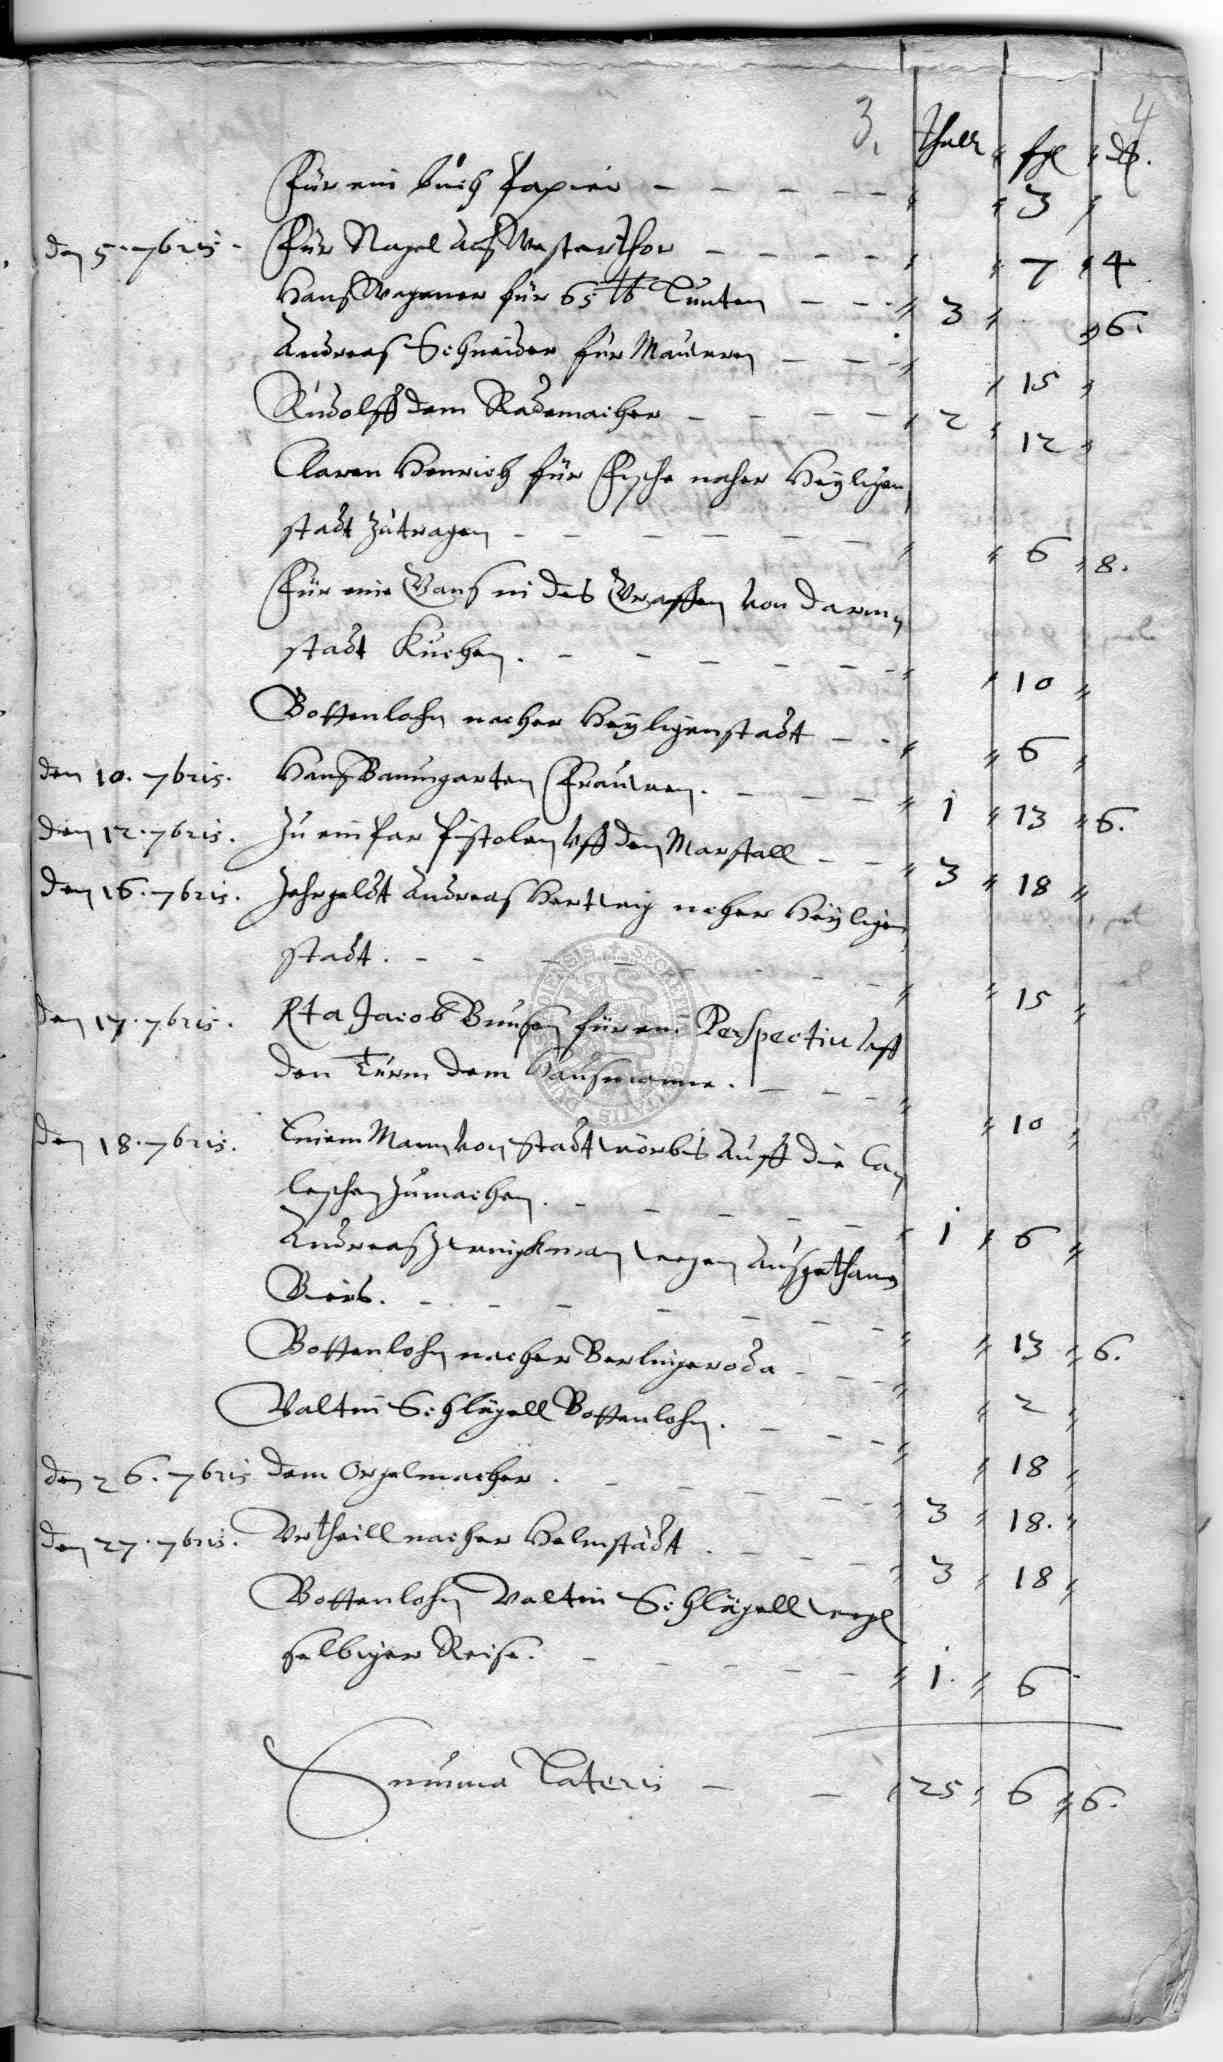 3. Thall. ßgl. d. 4
Für ein buch Papier - - - - - " " 3 "
den 5. 7bris. Für Nagel ans Westerthor - - - - " " 7 " 4
Hanß Wagener für 65 lb Lunten - - - " 3 " " 6.
Andreas Schneider für Mauren - - - " " 15 "
Rudolff dem Rademacher - - - - " 2 " 12 "
Claren Henrich für Fische nacher Heyligen
stadt zutragen - - - - - - " " 6 " 8.
Für eine Gans in des Graffen von Darm
stadt Kuchen. - - - - - - " " 10 "
Bottenlohn nacher Heyligenstadt - - " " 6 "
den 10. 7bris. Hanß Baumgarten Frauwen. - - - " 1 " 13 " 6.
den 12. 7bris. Zu ein par Pistolen uff den Marstall - - " 3 " 18 "
den 16. 7bris. Zehrgeldt Andreas Hertwig nacher Heyligen
stadt. - - - - - - - " " 15 "
den 17. 7bris. Jacob Bunsen für ein Perspectiv uff
den Turm dem Hausmanne. - - - " " 10 "
den 18. 7bris. Einem Mann von Stadtworbis auff die
zumachen. - - - - - " 1 " 6 "
Andreas wegen außgethanes
Biers. - - - - - - - " " 13 " 6.
Bottenlohn nacher Berlingeroda - - - " " 2 "
Valtin Schlägell Bottenlohn. - - - " " 18 "
den 26. 7bris dem Orgelmacher. - - - - - " 3 " 18. "
den 27. 7bris. Urtheill nacher Helmstädt. - - - - " 3 " 18 "
Bottenlohn Valtin Schlägell wegen
selbiger Reise. - - - - - " 1. " 6
Summa Lateris - - " 25 " 6 " 6.